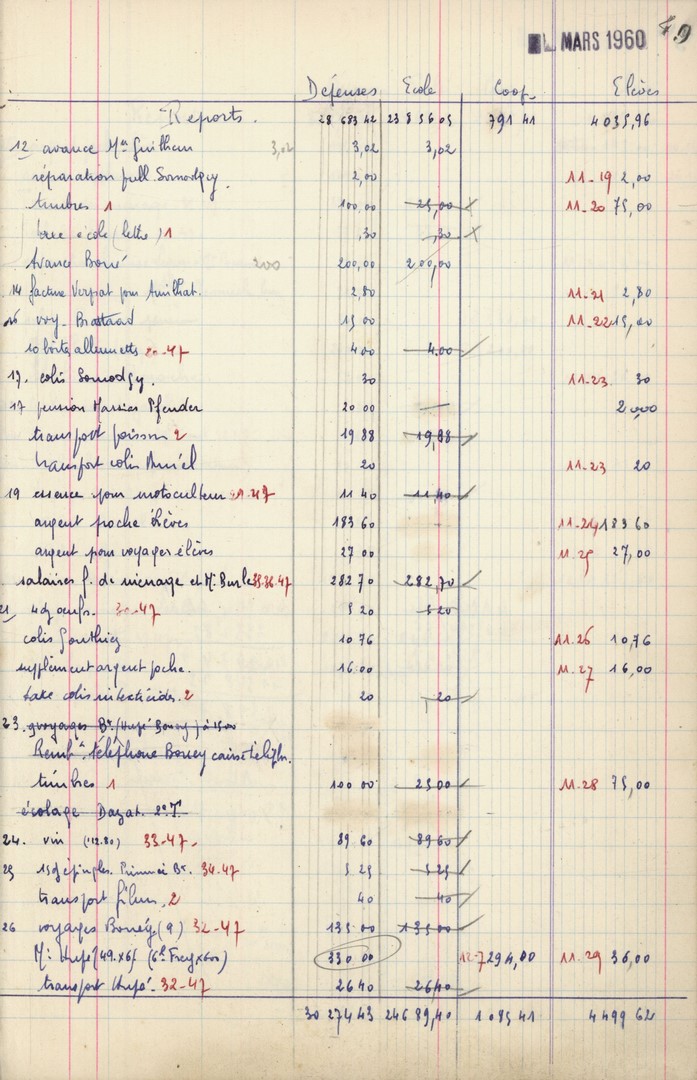 MARS 1960 49
Dépenses Ecole Coop. Elèves
Reports. 28 683 42 23 856 05 791 41 4035,96
12 avance Me Guilhem 3,02 3,02 3,02
réparation pull. Somodgy. 2,00 11-19 2,00
timbres 1 100,00 25,00 11-20 75,00
taxe école (lettre) 1 ,30 ,30
Avance Borré 200 200,00 200,00
14 facture Verprat pour Amilhat. 2,80 11-21 2,80
16 voy. 15 00 11-22 15,00
10 boîtes allumettes 4 00 4,00
17. colis Somodgy. 30 11-23 30
17 pension Pfender 20 00 — 20,00
transport poisson 2 19 88 19,88
transport colis 20 11-23 20
19 essence pour motoculteur 11 40 11,40
argent poche élèves 183 60 11-24 183 60
argent pour voyages élèves 27 00 11-25 27,00
salaires f. de ménage et Mr Burle 35.36.47 282 70 282,70
21 4 dz oeufs. 30-47 5 20 5 20
colis Gonthiez 10 76 11.26 10,76
supplément argent poche. 16 00 11-27 16,00
taxe colis insecticides. 2 20 20
23. voyages
Remb. téléphone
timbres 1 100 00 25 00 11-28 75,00
écolage Dazat. 2e T
24. vin (112.80) 33-47- 89 60 89 60
25 épingles. 34-47 5 25 5 25
transport films. 2 40 40
26 voyages (9) 32-47 135 00 135 00
(49.x6) 330 00 12-7 294,00 11.29 36,00
transport 32-47 26 40 26 40
30 274 43 246 89,40 1 085 41 4499 62